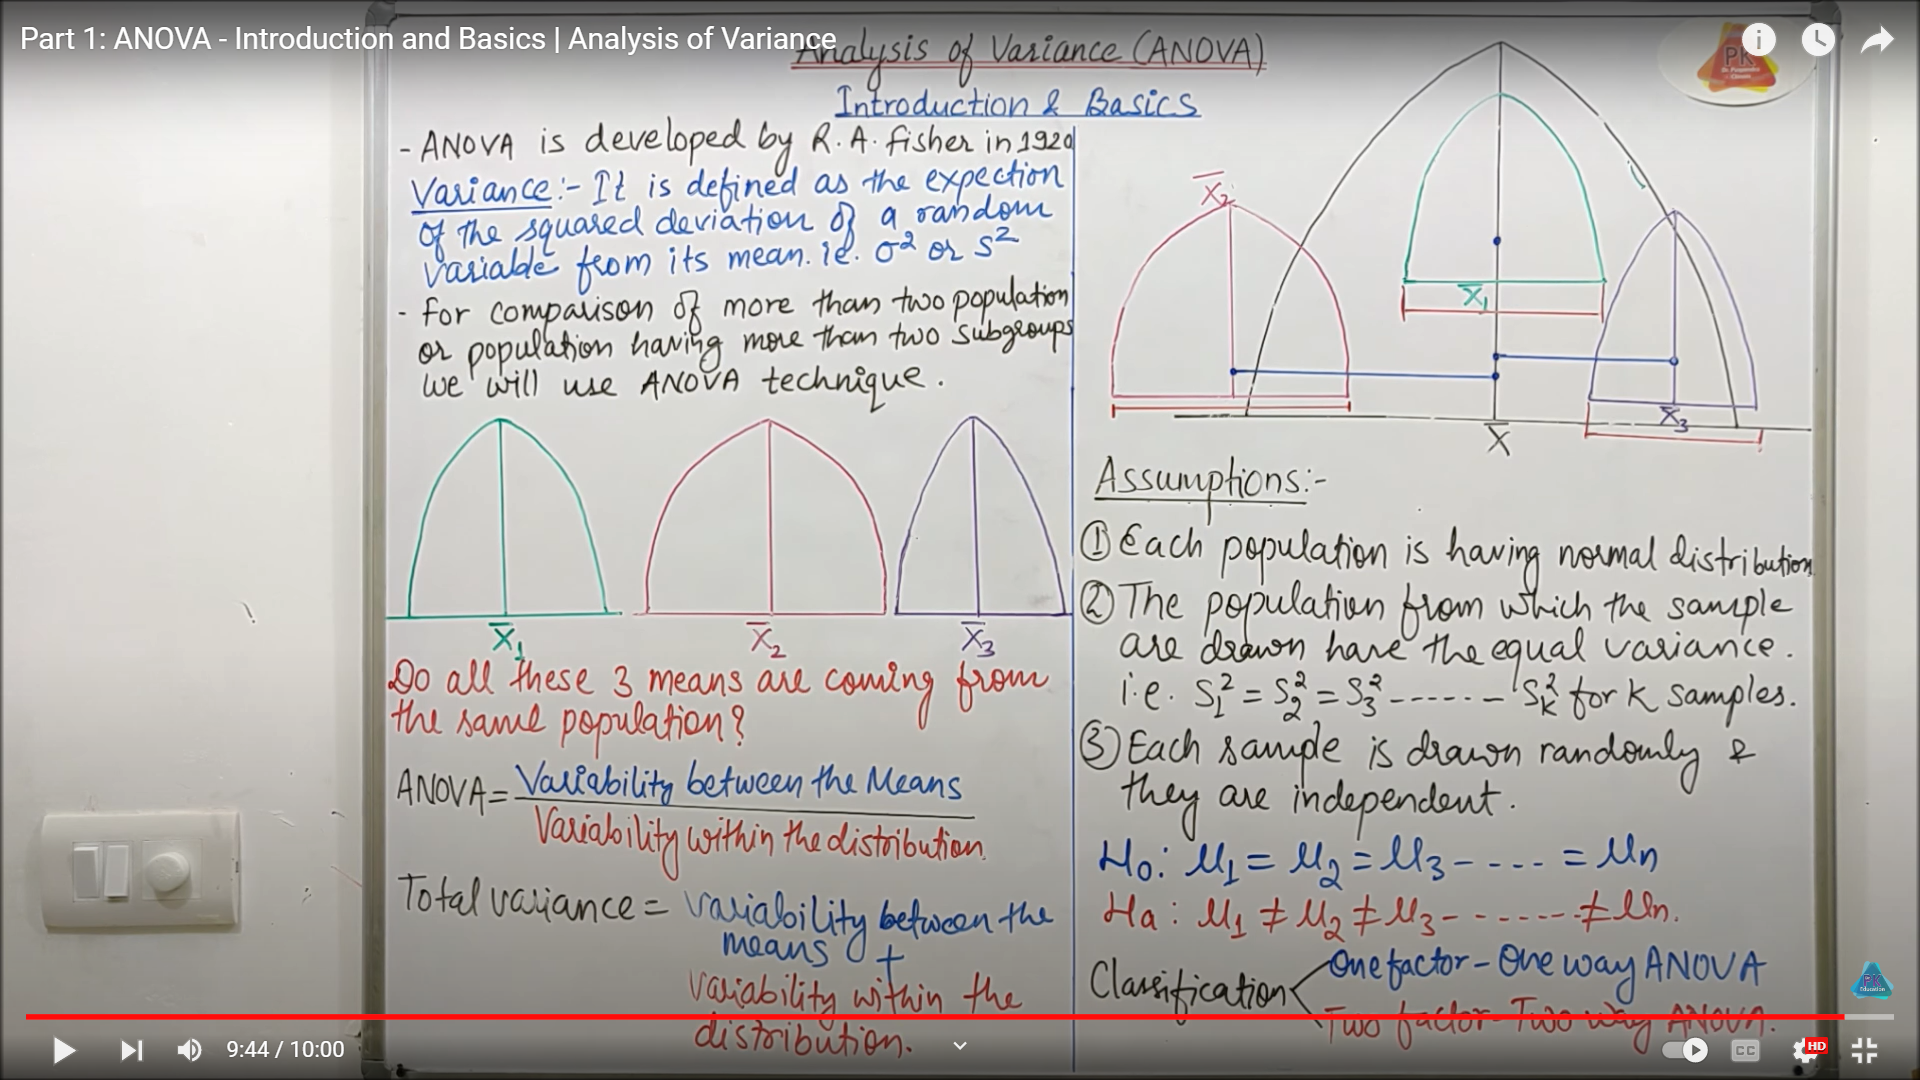 Part 1: ANOVA - Introduction and Basics | Analysis of Variance
Analysis of Variance (ANOVA)
Introduction & Basics
- ANOVA is developed by R. A. fisher in 1920
Variance:- It is defined as the expection
of the squared deviation of a random
variable from its mean. ie. σ² or S²
- for comparison of more than two population
or population having more than two subgroups
we will use ANOVA technique.
X̅₁ X̅₂ X̅₃
Do all these 3 means are coming from
the same population?
ANOVA = Variability between the Means
Variability within the distribution.
Total variance = variability between the
means +
variability within the
distribution.
PK
X̅₂
X̅₁
X̅₃
X̅
Assumptions:-
① Each population is having normal distribution.
② The population from which the sample
are drawn have the equal variance.
i.e. S₁² = S₂² = S₃² ------ Sₖ² for K samples.
③ Each sample is drawn randomly &
they are independent.
Ho: μ₁ = μ₂ = μ₃ - - - - = μn
Ha: μ₁ ≠ μ₂ ≠ μ₃ - ------ ≠ μn.
Classification
One factor - One way ANOVA
Two factor - Two way ANOVA.
PK
Education
9:44 / 10:00
CC
HD